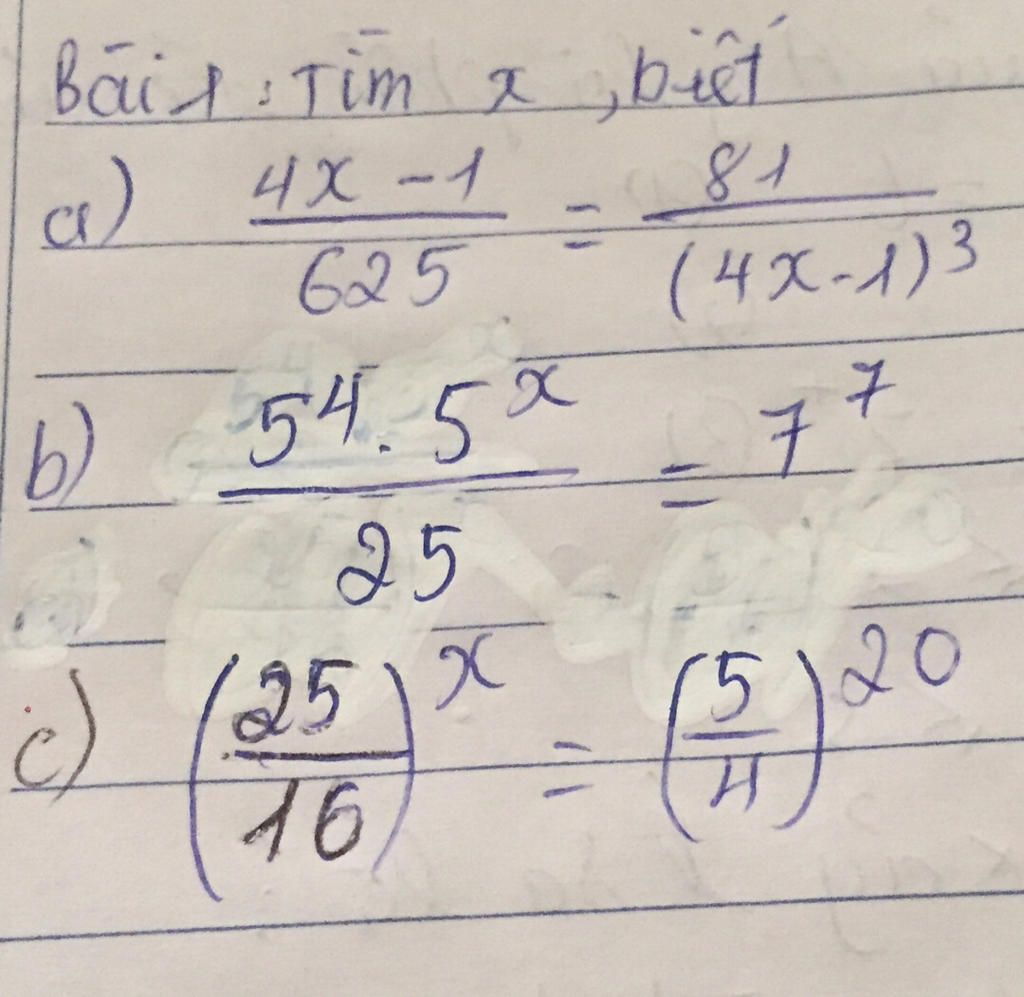 Bài 1: Tìm x, biết
a) (4x - 1)/625 = 81/(4x-1)³
b) (5⁴ . 5ˣ)/25 = 7⁷
c) (25/16)ˣ = (5/4)²⁰